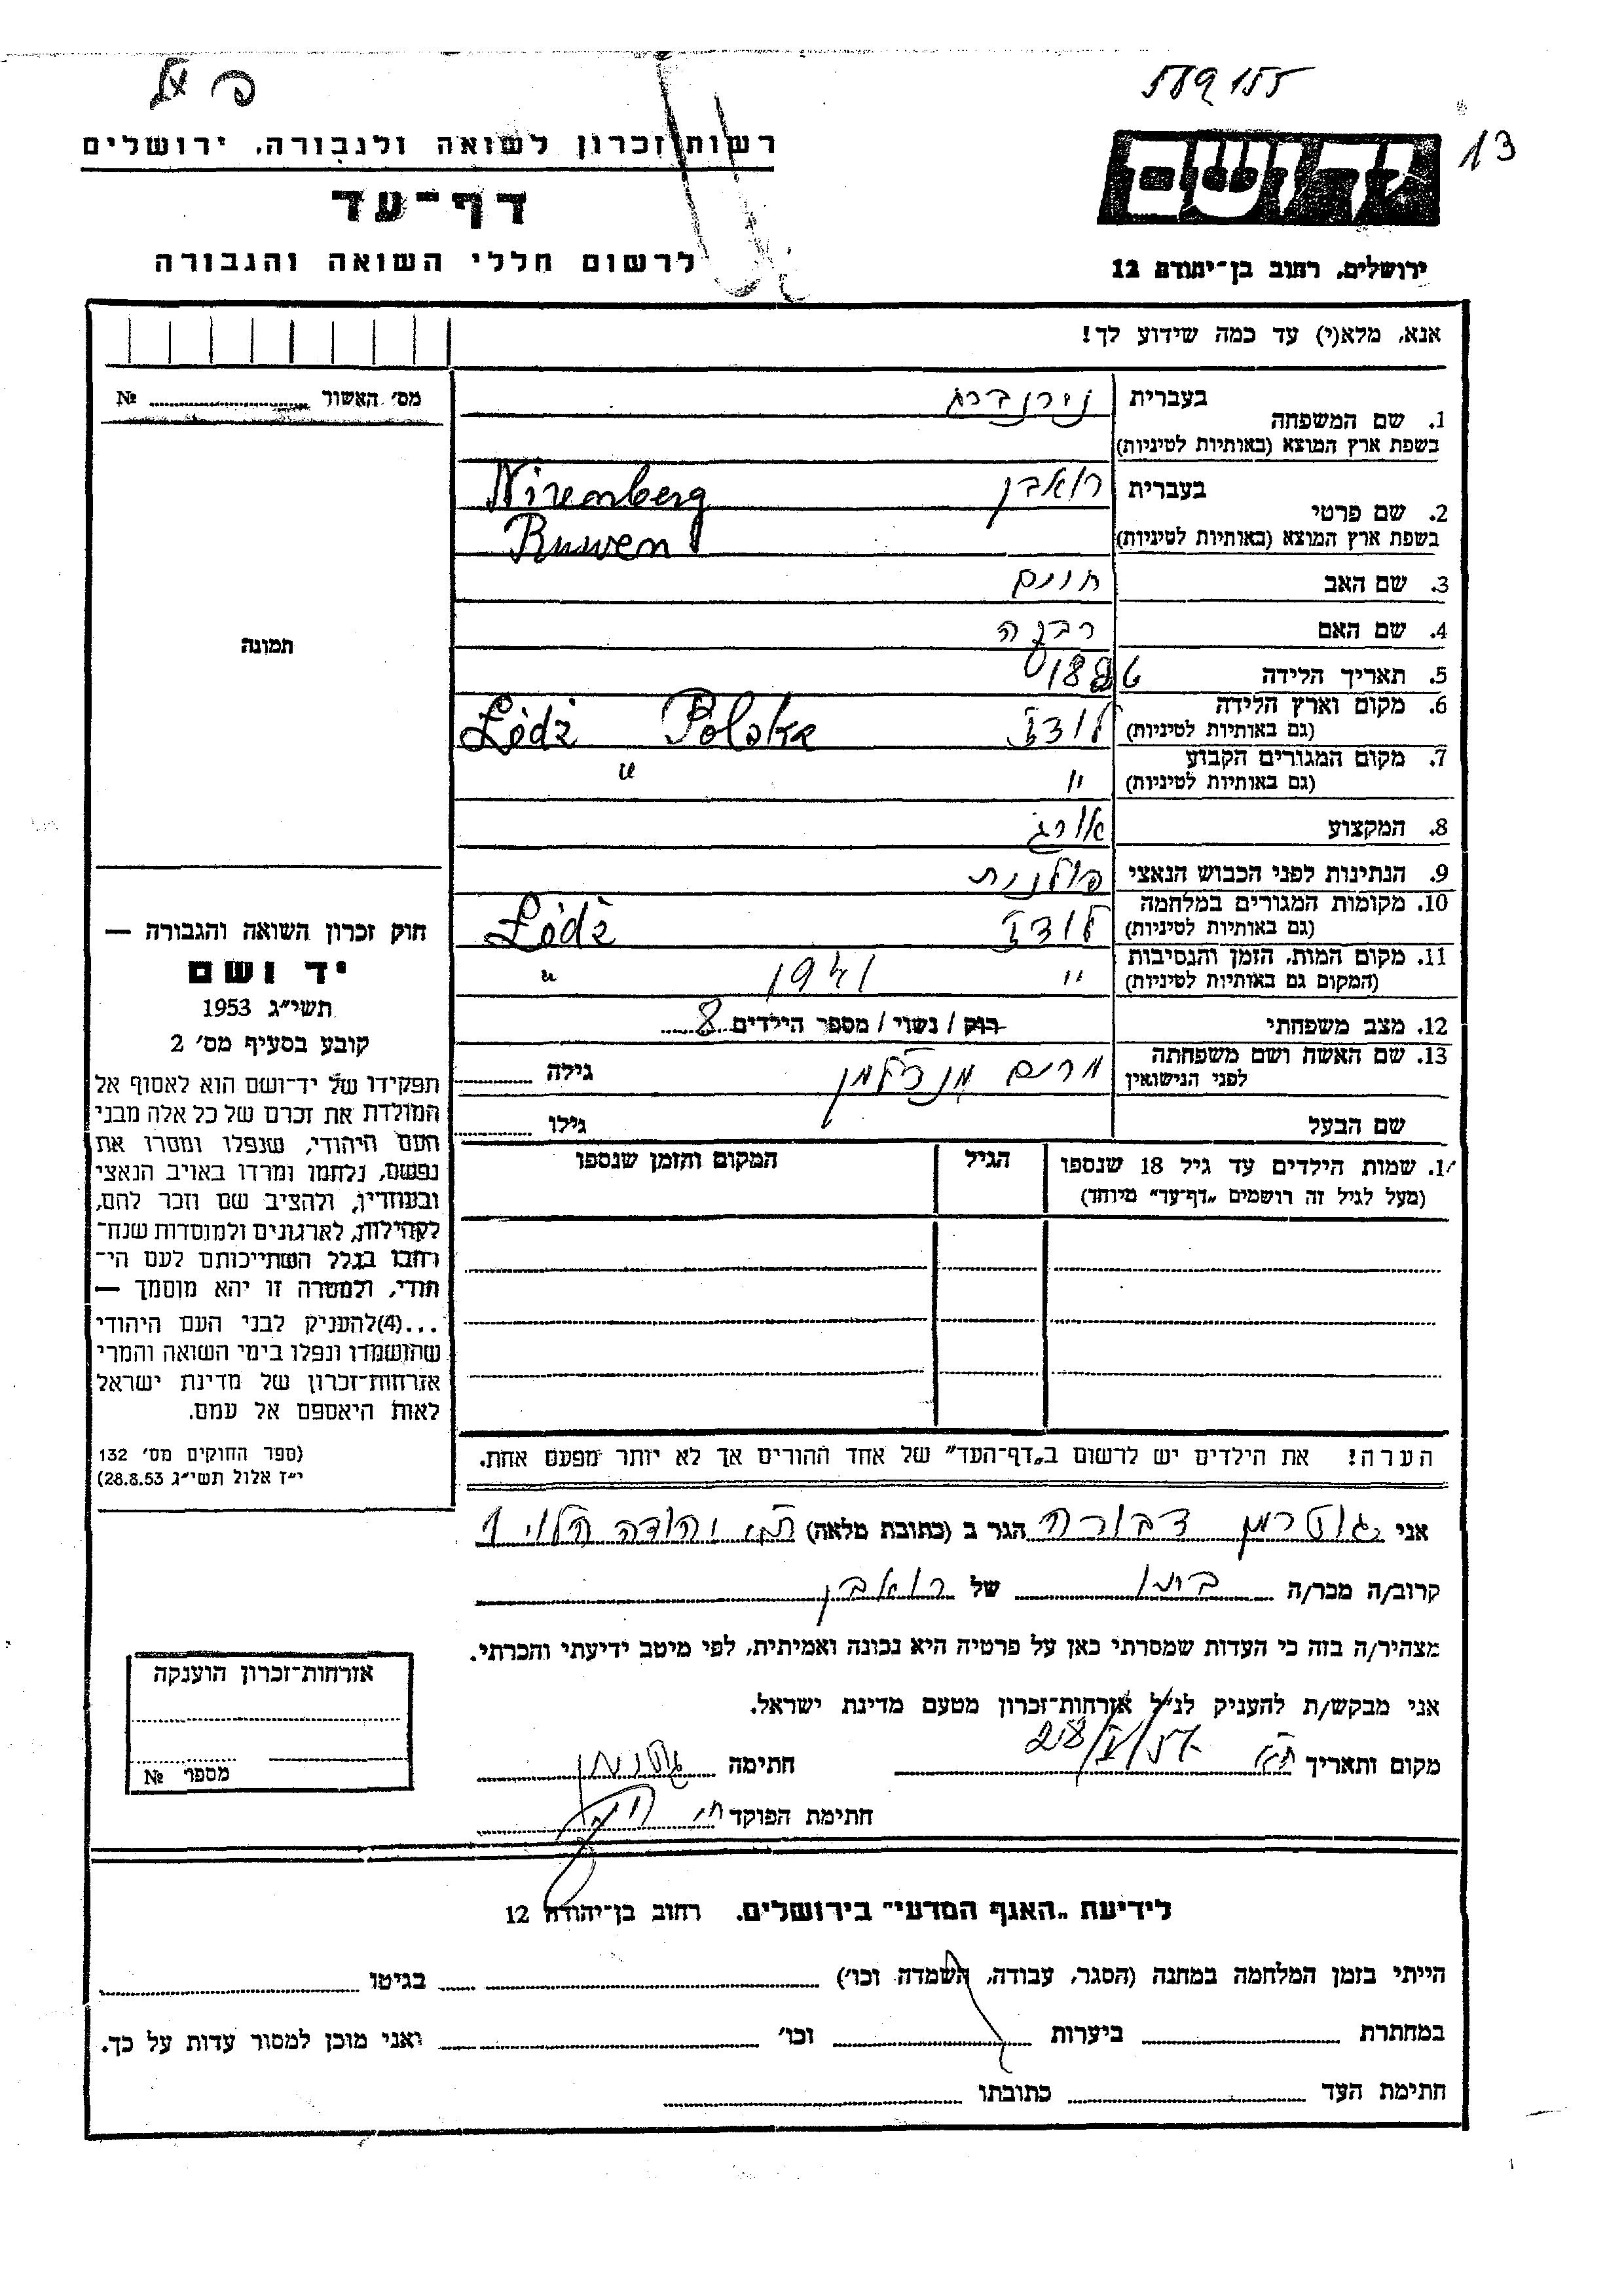 פ אל
589155
13
רשות זכרון לשואה ולגבורה, ירושלים
דף־עד
לרשום חללי השואה והגבורה
יד ושם
ירושלים, רחוב בן־יהודה 12
אנא, מלא(י) עד כמה שידוע לך!
מס׳ האשור № 
1. שם המשפחה בעברית נירנברג
בשפת ארץ המוצא (באותיות לטיניות) Nirenberg
2. שם פרטי בעברית ראובן
בשפת ארץ המוצא (באותיות לטיניות) Ruwen
3. שם האב חיים
4. שם האם רבקה
5. תאריך הלידה
6. מקום וארץ הלידה לודז Łódź Polska
(גם באותיות לטיניות)
7. מקום המגורים הקבוע " "
(גם באותיות לטיניות)
8. המקצוע אורג
9. הנתינות לפני הכבוש הנאצי פולנית
10. מקומות המגורים במלחמה לודז Łódź
(גם באותיות לטיניות)
11. מקום המות, הזמן והנסיבות " 1941 "
(המקום גם באותיות לטיניות)
12. מצב משפחתי רוק / נשוי / מספר הילדים 8
13. שם האשה ושם משפחתה מרים גילה
לפני הנישואין
שם הבעל גילו
תמונה
חוק זכרון השואה והגבורה —
יד ושם
תשי״ג 1953
קובע בסעיף מס׳ 2
תפקידו של יד־ושם הוא לאסוף אל
המולדת את זכרם של כל אלה מבני
העם היהודי, שנפלו ומסרו את
נפשם, נלחמו ומרדו באויב הנאצי
ובעוזריו, ולהציב שם וזכר להם,
לקהילות, לארגונים ולמוסדות שנח־
רבו בגלל השתייכותם לעם הי־
הודי, ולמטרה זו יהא מוסמך —
...(4)להעניק לבני העם היהודי
שהושמדו ונפלו בימי השואה והמרי
אזרחות־זכרון של מדינת ישראל
לאות היאספם אל עמם.
(ספר החוקים מס׳ 132
י״ז אלול תשי״ג 28.8.53)
1. שמות הילדים עד גיל 18 שנספו הגיל המקום והזמן שנספו
(מעל לגיל זה רושמים „דף־עד״ מיוחד)
הערה! את הילדים יש לרשום ב„דף־העד״ של אחד ההורים אך לא יותר מפעם אחת.
אני גוטרמן דבורה הגר ב (כתובת מלאה) יהודה הלוי
קרוב/ה מכר/ה ביתו של ראובן
מצהיר/ה בזה כי העדות שמסרתי כאן על פרטיה היא נכונה ואמיתית, לפי מיטב ידיעתי והכרתי.
אני מבקש/ת להעניק לנ״ל אזרחות־זכרון מטעם מדינת ישראל.
מקום ותאריך ת״א חתימה
חתימת הפוקד
אזרחות־זכרון הוענקה
מספר №
לידיעת „האגף המדעי״ בירושלים, רחוב בן־יהודה 12
הייתי בזמן המלחמה במחנה (הסגר, עבודה, השמדה וכו׳) בגיטו
במחתרת ביערות וכו׳ ואני מוכן למסור עדות על כך.
חתימת העד כתובתו